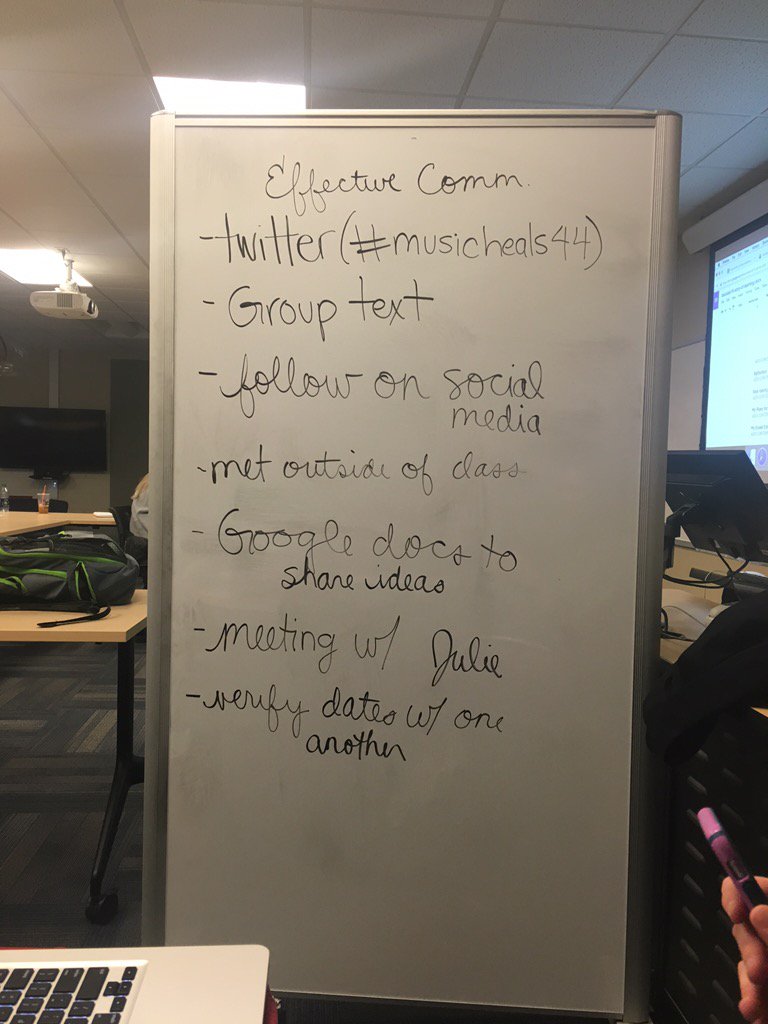 Effective Comm.
- twitter (#musicheals44)
- Group text
- follow on social
media
- met outside of class
- Google docs to
share ideas
- meeting w/ Julie
- verify dates w/ one
another